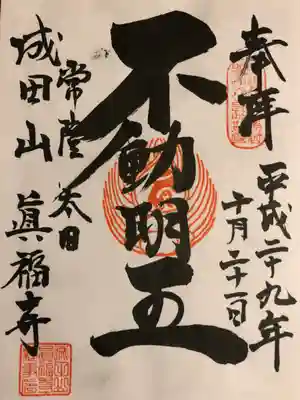 奉拝
平成二十九年
十月二十一日
不動明王
常陸太田
成田山
眞福寺